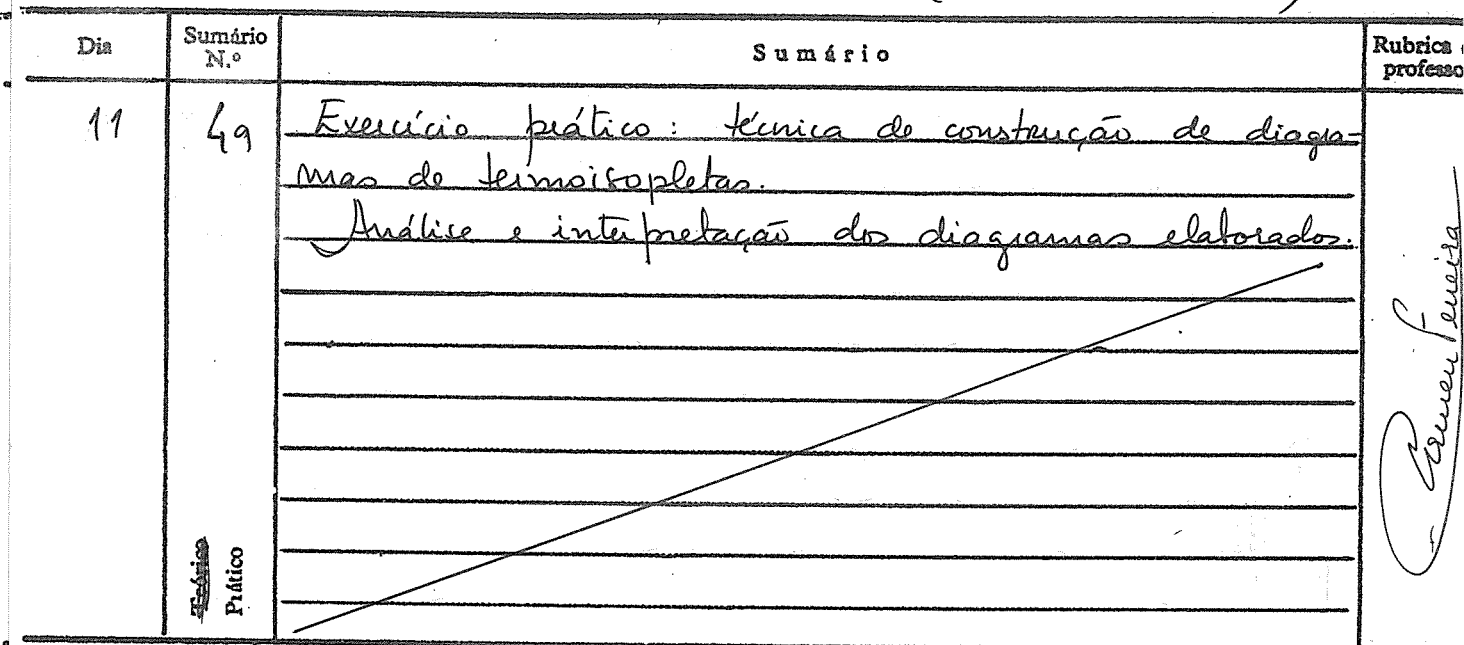 Dia Sumário N.º Sumário Rubrica professo
11 49 Exercício prático: técnica de construção de diagra-
mas de termoisopletas.
Análise e interpretação dos diagramas elaborados.
Teórico
Prático
Carmen Ferreira